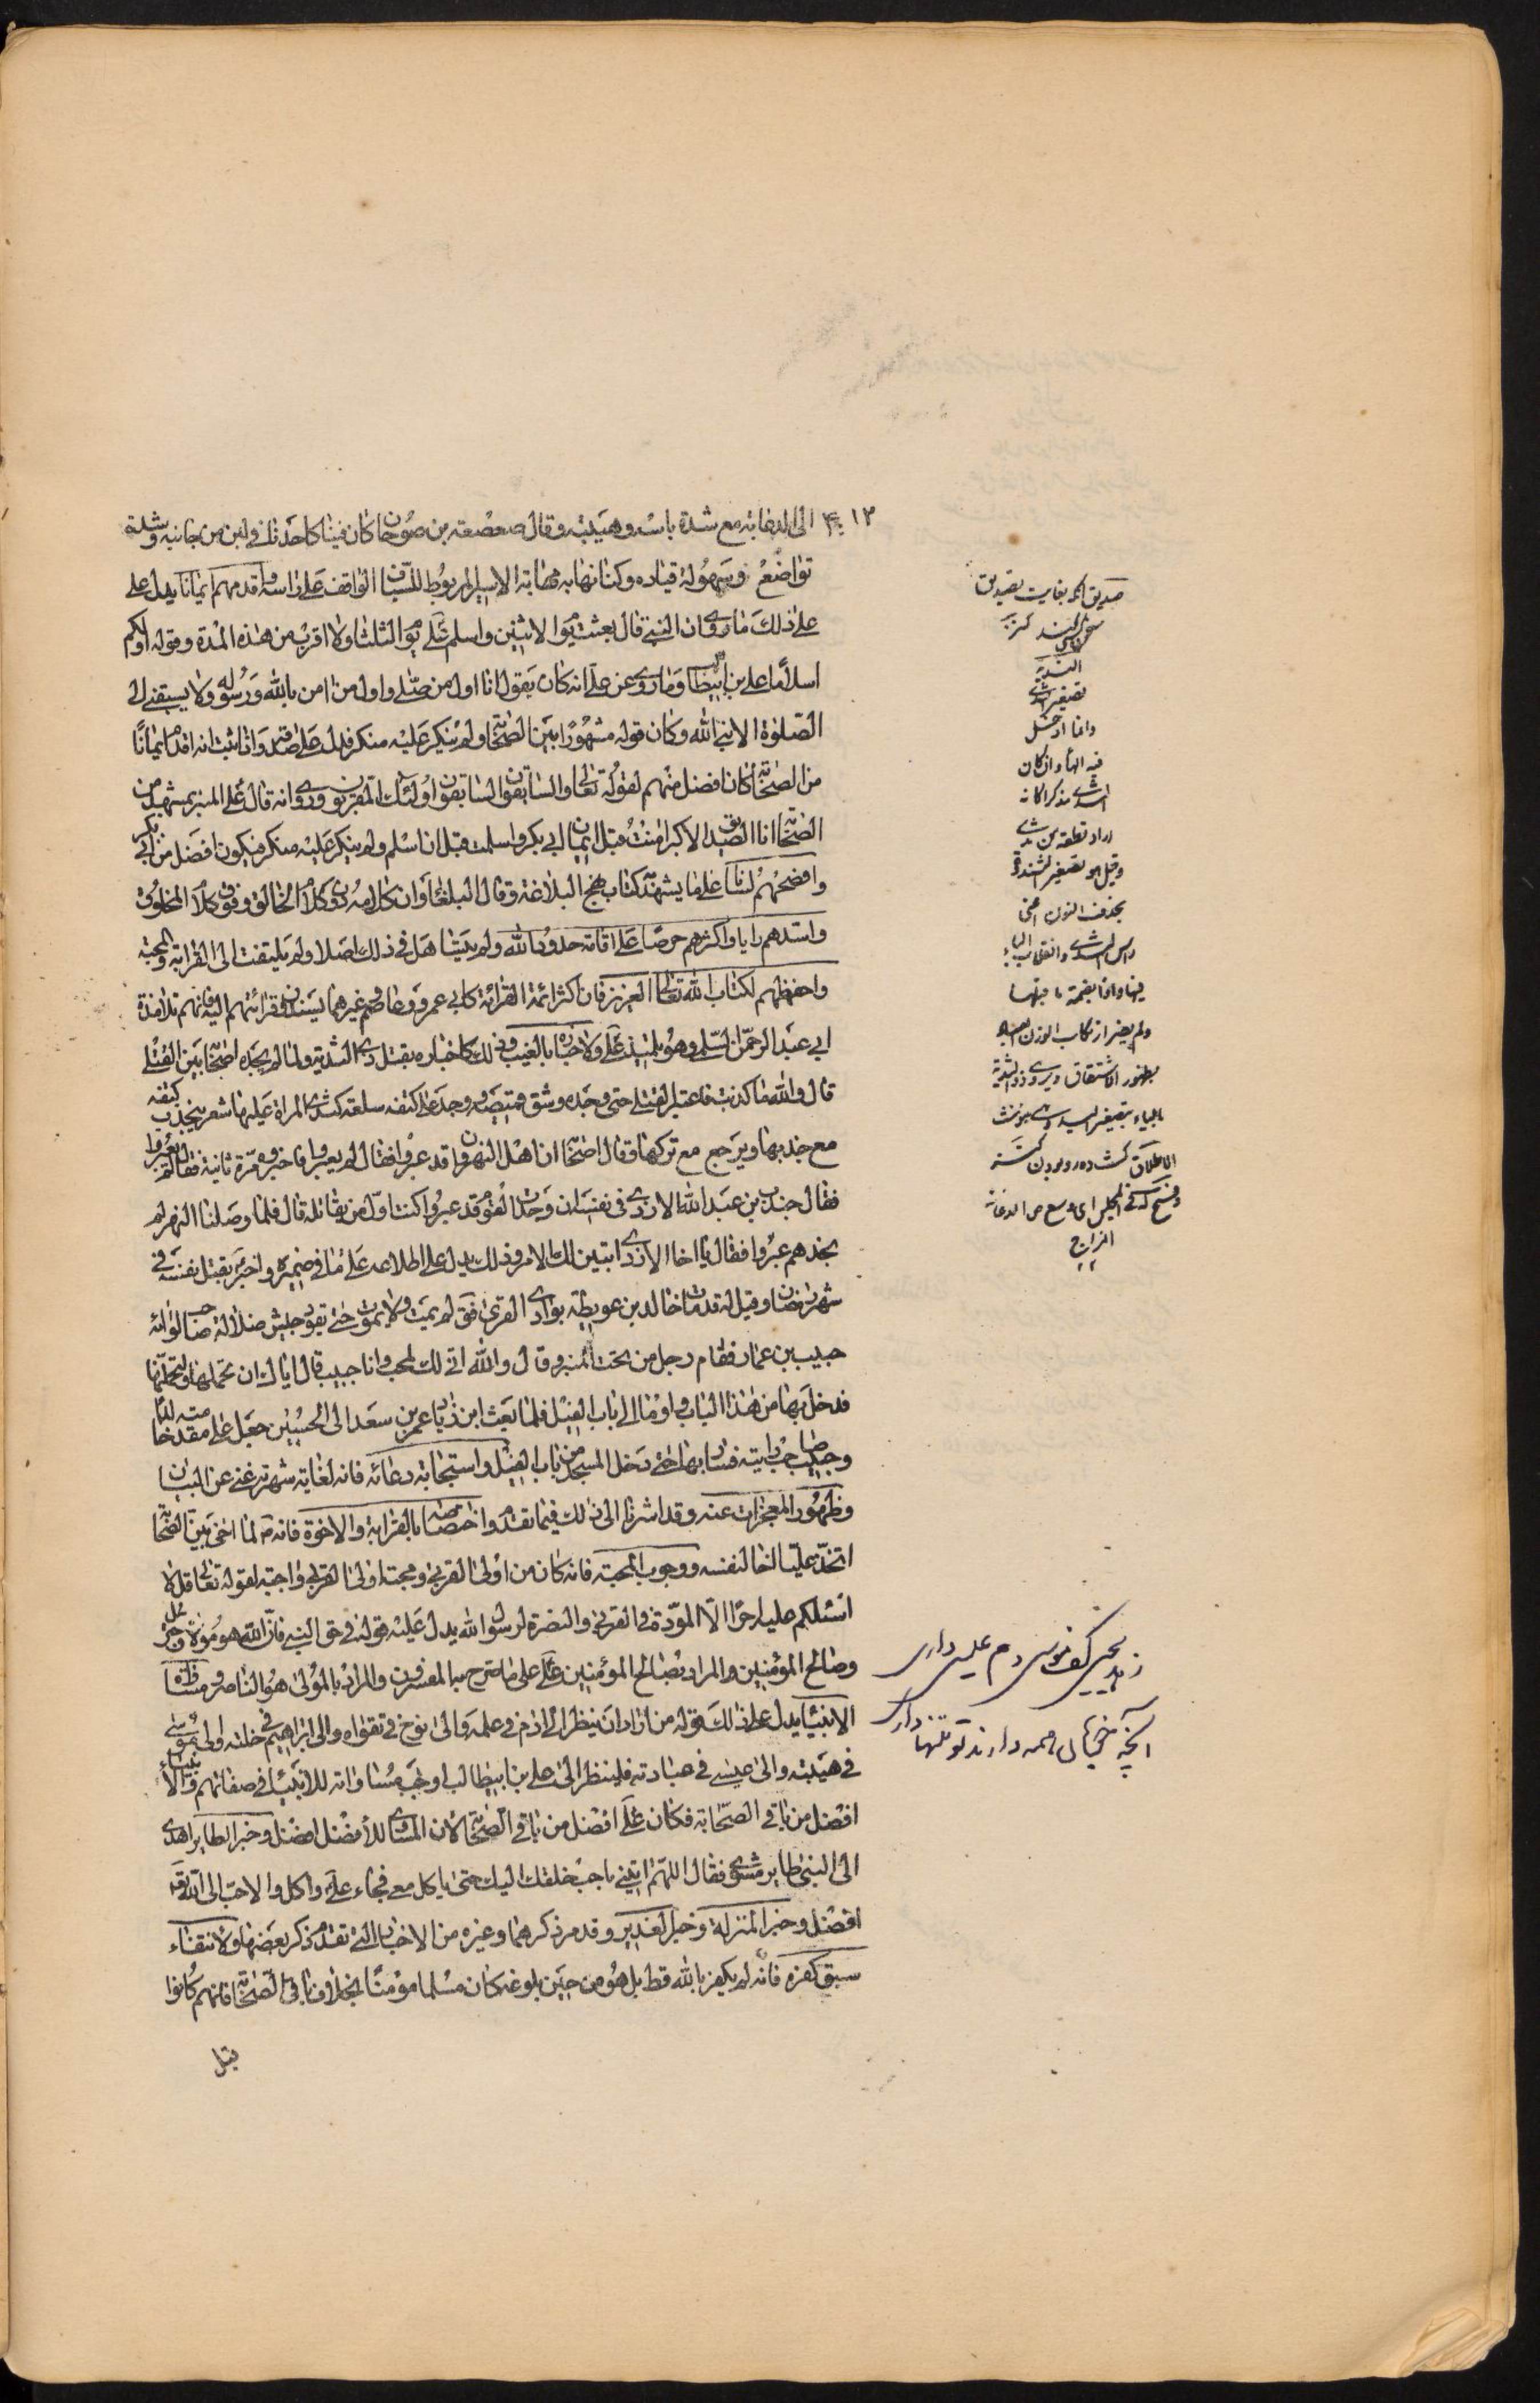 الى الدعابة مع شدة باسه وهيبته وقال صعصعة بن صوحان كان فينا كاحدنا في لين من جانبه وشدة
تواضع وسهولة قياده وكنا نهابه مهابة الاسير المربوط للسياف الواقف على راسه واقدمهم ايمانا يدل على
على ذلك ما روى ان النبي قال بعثت يوم الاثنين واسلم علي يوم الثلثا ولا اقرب من هذه المدة وقوله اولكم
اسلاما علي بن ابيطالب وما روى عن علي انه كان يقول انا اول من صلى واول من امن بالله ورسوله ولا يسبقني الى
الصلوة الا نبي الله وكان قوله مشهورا بين الصحابة ولم ينكر عليه منكر فدل على صدقه واذا ثبت انه اقدم ايمانا
من الصحابة كان افضل منهم لقوله تعالى والسابقون السابقون اولئك المقربون وروى انه قال على المنبر بمشهد من
الصحابة انا الصديق الاكبر امنت قبل ايمان ابي بكر واسلمت قبل ان اسلم ولم ينكر عليه منكر فيكون افضل من ابي بكر
وافصحهم لسانا على ما يشهد كتاب نهج البلاغة وقال البلغاء وان كلامه دون كلام الخالق وفوق كلام المخلوق
واسدهم رايا واكثرهم حرصا على اقامة حدود الله ولم يتساهل في ذلك اصلا ولم يلتفت الى القرابة والمحبة
واحفظهم لكتاب الله تعالى العزيز فان اكثر ائمة القرائة كابي عمرو وعاصم وغيرهما يسندون قرائتهم اليه فانهم تلامذة
ابي عبد الرحمن السلمي وهو تلميذ علي ولاخباره بالغيب وذلك كاخباره بقتل ذي الثدية ولما لم يجده اصحابه بين القتلى
قال والله ما كذبت فاعتبر القتلى حتى وجده وشق قميصه ووجد على كتفه سلعة كثدي المراة عليها شعر ينجذب كتفه
مع جذبها ويرجع مع تركها وقال اصحابه ان اهل النهروان قد عبروا فقال لم يعبروا فاخبروه مرة ثانية فقال لم يعبروا
فقال جندب بن عبد الله الازدي في نفسه ان وجدت القوم قد عبروا كنت اول من يقاتله قال فلما وصلنا النهر لم
نجدهم عبروا فقال يا اخا الازد اتبين لك الامر وذلك يدل على اطلاعه على ما في ضميره واخبر بقتل نفسه في
شهر رمضان وقيل له قد مات خالد بن عويطة بوادي القرى فق لم يمت ولا يموت حتى يقود جيش ضلالة صاحب لوائه
حبيب بن عمار فقام رجل من تحت المنبر وقال والله اني لك لمحب وانا حبيب قال اياك ان تحملها ولتحملنها
فدخل بها من هذا الباب واومأ الى باب الفيل فلما بعث ابن زياد عمر بن سعد الى الحسين جعل على مقدمته خالدا
وحبيب صاحب رايته فسار بها حتى دخل المسجد من باب الفيل واستجابة دعائه فانه لغاية شهرته غني عن البيان
وظهور المعجزات عنه وقد اشرنا الى ذلك فيما تقدم واختصاصه بالقرابة والاخوة فانه لما اخى بين الصحابة
اتخذ عليا اخا لنفسه ووجوب المحبة فانه كان من اولى القربى ومحبة اولى القربى واجبة لقوله تعالى قل لا
اسئلكم عليه اجرا الا المودة في القربى والنصرة لرسول الله يدل عليه قوله في حق النبي فان الله هو موليه وجبرئل
وصالح المؤمنين والمراد بصالح المؤمنين علي على ما صرح به المفسرون والمراد بالمولى هو الناصر ومساواة
الانبيا يدل على ذلك قوله من اراد ان ينظر الى ادم في علمه والى نوح في تقواه والى ابراهيم في خلته والى موسى
في هيبته والى عيسى في عبادته فلينظر الى علي بن ابيطالب اوجب مساواته للانبيا في صفاتهم والانبيا
افضل من باقي الصحابة فكان علي افضل من باقي الصحابة لان المساوي للافضل افضل وخبر الطاير اهدى
الى النبي طاير مشوي فقال اللهم ائتني باحب خلقك اليك حتى ياكل معي فجاء علي واكل والاحب الى الله تعالى
افضل وخبر المنزلة وخبر الغدير وقد مر ذكرهما وغيره من الاخبار التي تقدم ذكر بعضها ولانتفاء
سبق كفره فانه لم يكفر بالله قط بل هو من حين بلوغه كان مسلما مؤمنا بخلاف باقي الصحابة فانهم كانوا
قبل
١٣
صديق انكه بغايت تصديق
سخن كسى كند كنز
الثدية
تصغير الثدي
وانما ادخل
فيه الهاء وان كان
الثدي مذكرا كانه
اراد قطعة من ثدي
وقيل هو تصغير الثندوة
بحذف النون
بالياء تصغير اليد
الاطلاق
المزاح
زهد يحيى كف موسى دم عيسى دارى
آنچه خوبان همه دارند تو تنها دارى